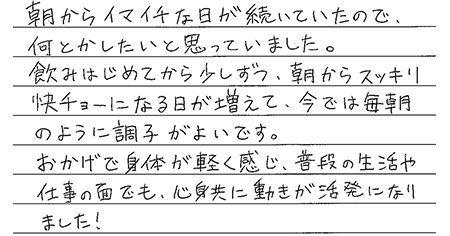 朝からイマイチな日が続いていたので、
何とかしたいと思っていました。
飲みはじめてから少しずつ、朝からスッキリ
快チョーになる日が増えて、今では毎朝
のように調子がよいです。
おかげで身体が軽く感じ、普段の生活や
仕事の面でも、心身共に動きが活発になり
ました!